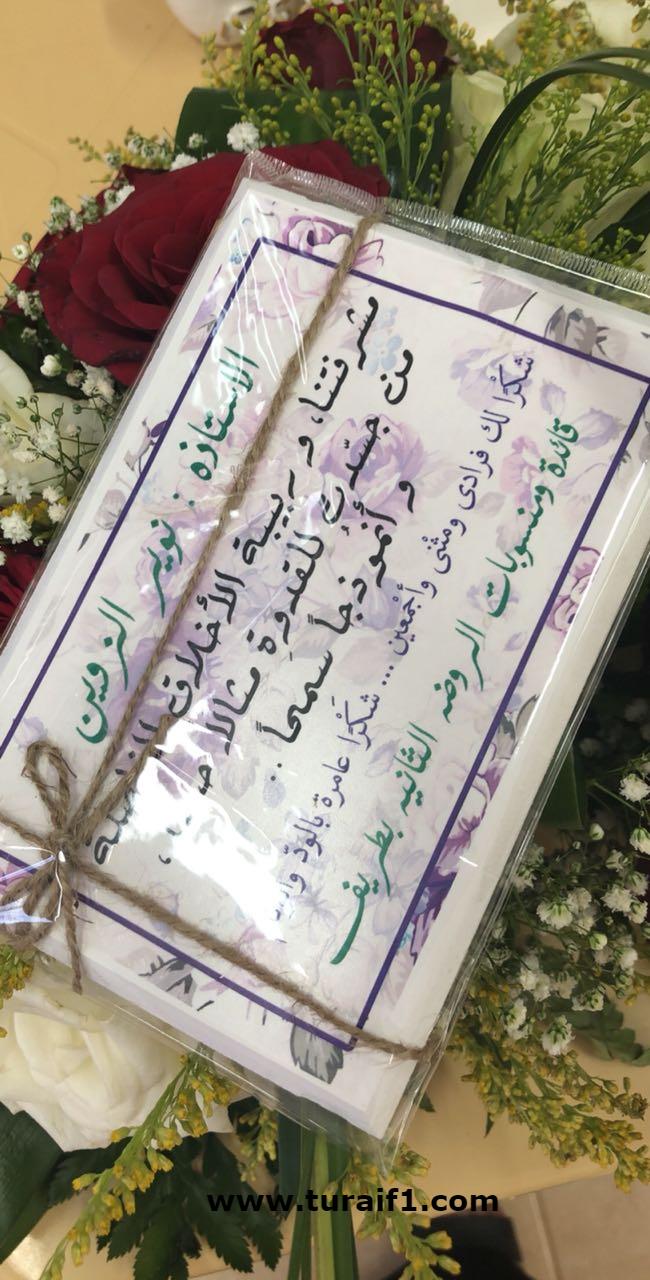 الاستاذه : نوير الزوين
مشرفتنا، وربيبة الأخلاق
من جسّدت للقدوة مثالاً
و أنموذجاً سمحاً ..
شكرًا لك فرادى ومثنى وأجمعين ... شكرًا عامرة بالودّ
قائدة ومنسوبات الروضه الثانيه بطريف
www.turaif1.com